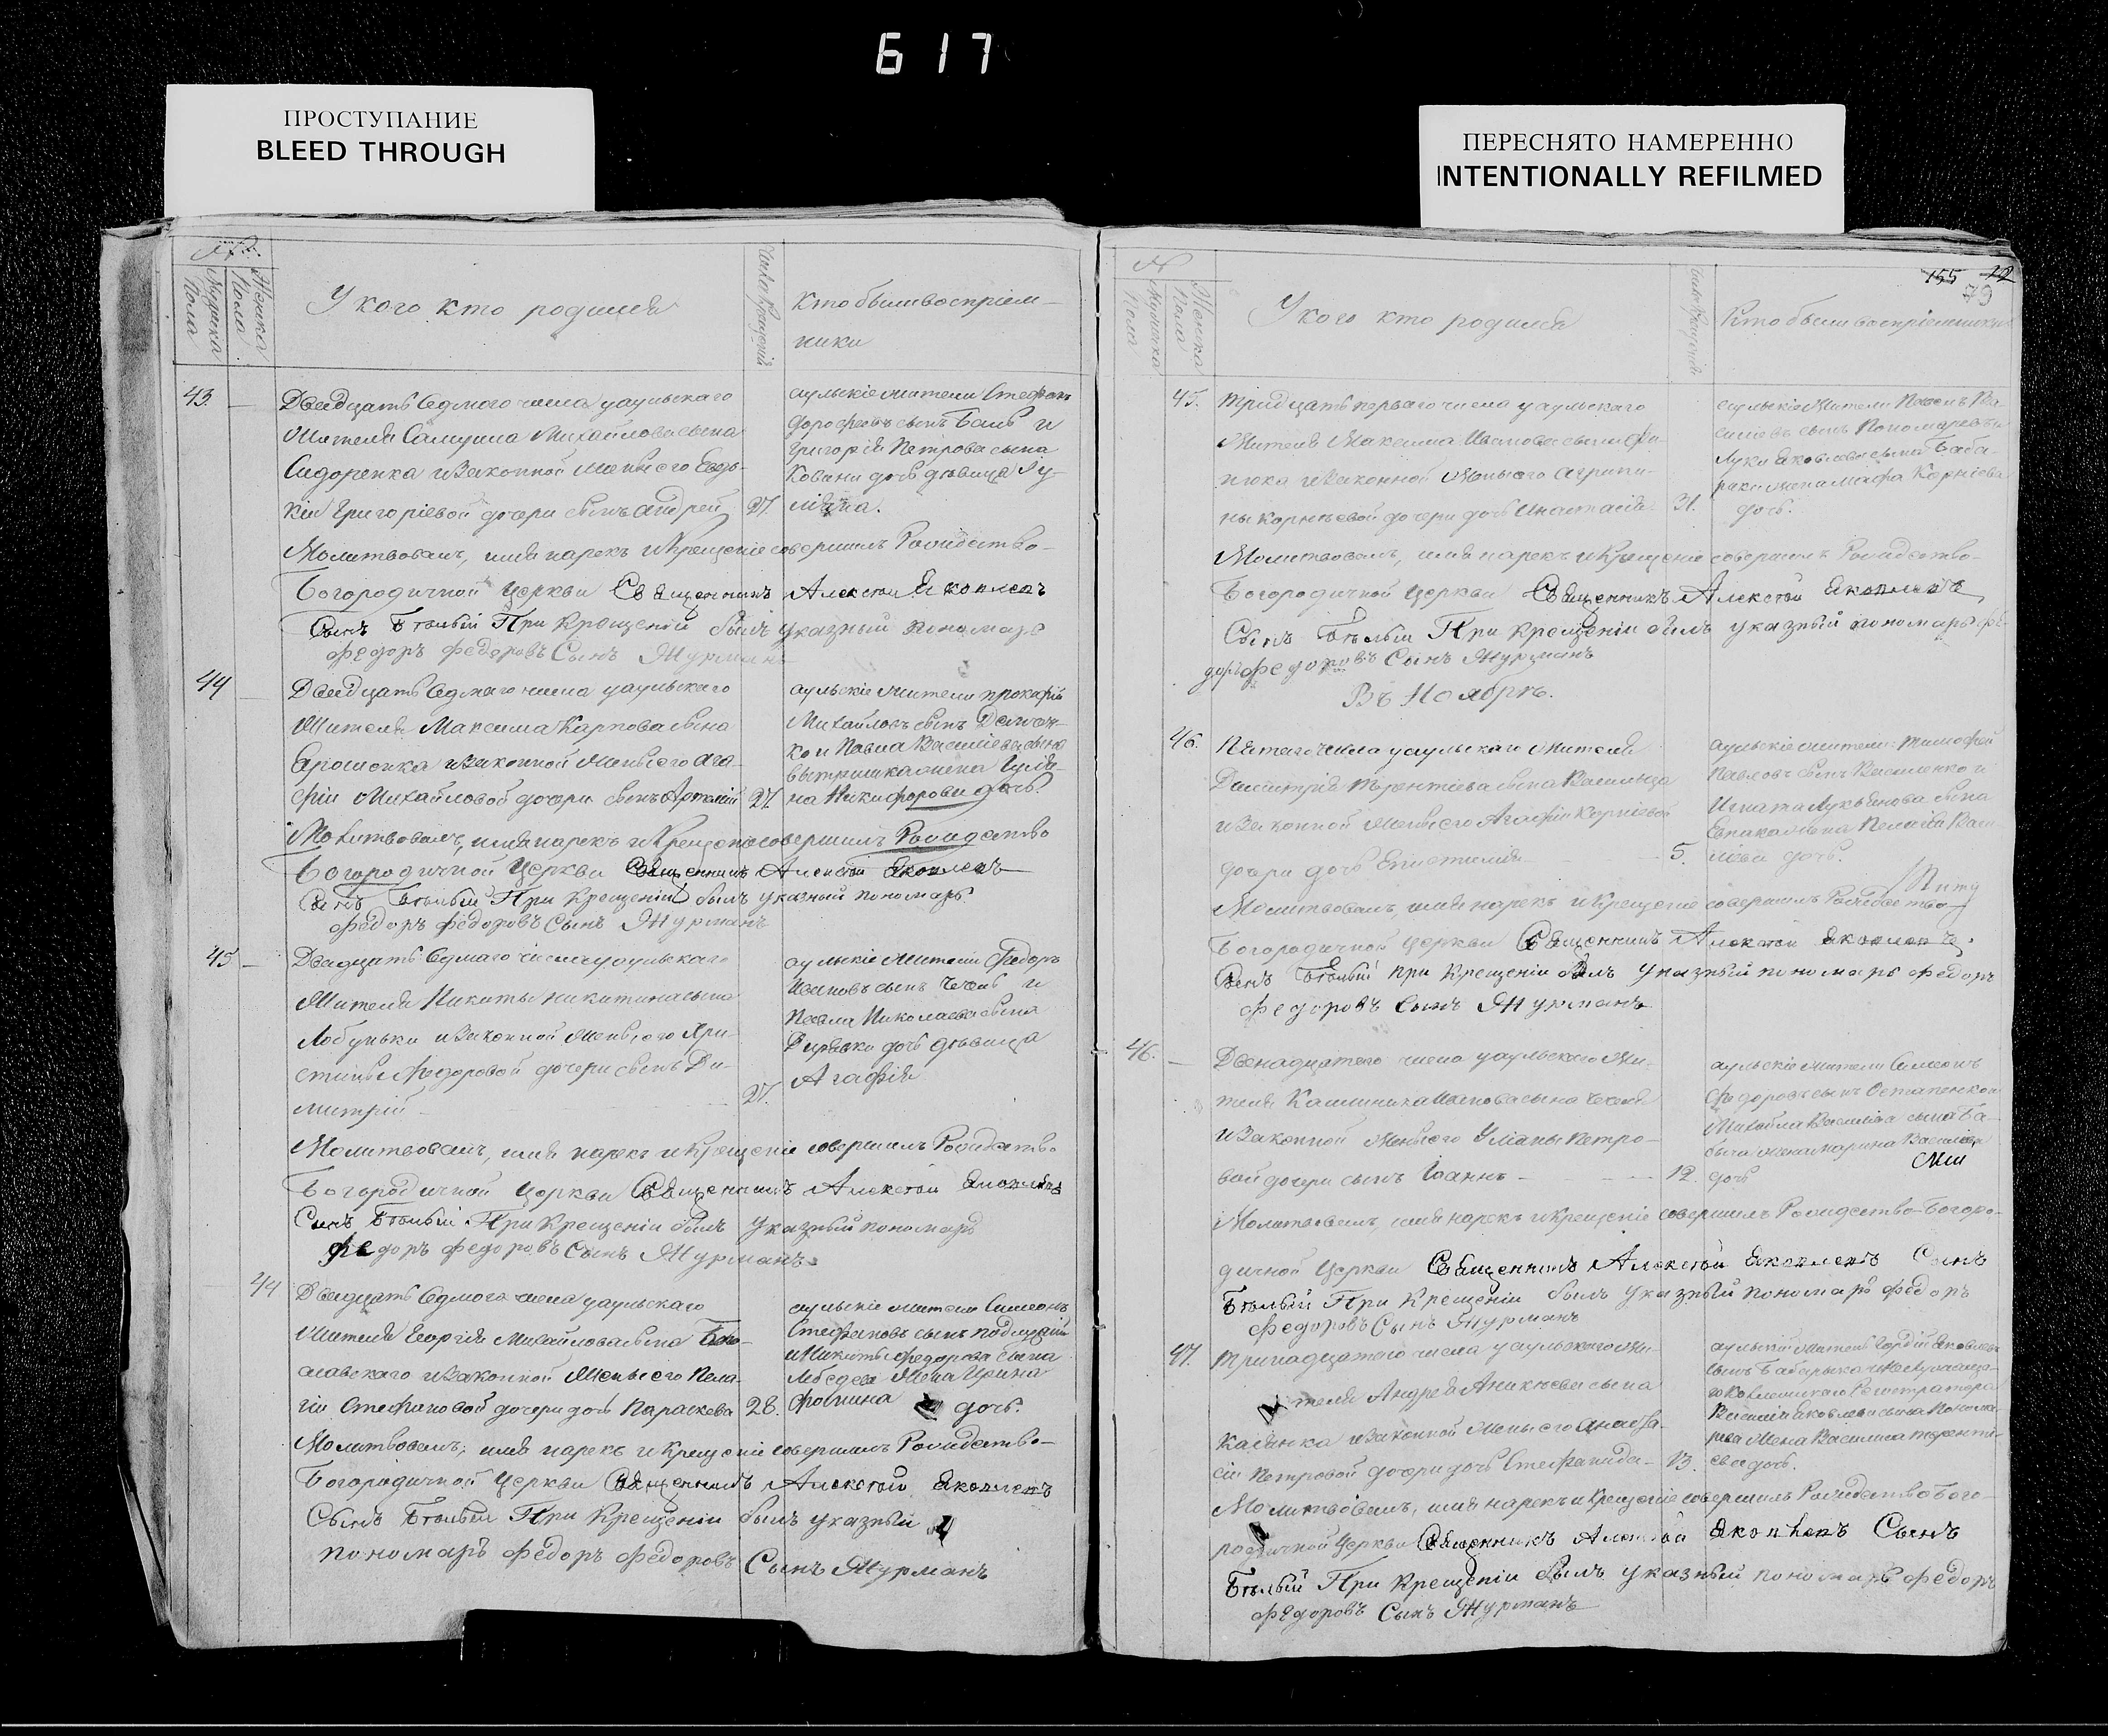 617
ПРОСТУПАНИЕ
BLEED THROUGH
ПЕРЕСНЯТО НАМЕРЕННО
INTENTIONALLY REFILMED
№
Мужеска Пола
Женска Пола
У кого кто родился
Число Крещений
Кто были воспріем-
ники
43.
Двадцать седмого числа у аульскаго
жителя Самуила Михайлова сына
Сидоренка и законной жены его Евдо-
кіи Григоріевой дочери сынъ Андрей
27.
аульскіе жители Стефанъ
сынъ и
Григорія Петрова сына
дочь девица
Молитвовалъ, имя нарекъ и Крещеніе совершилъ Рождество-
Богородичной Церкви Священникъ Алексѣй Яковлевъ
Сынъ Бѣлый При Крещеніи былъ указный пономарь
Федоръ Федоровъ Сынъ Журманъ
44
Двадцать седмаго числа у аульскаго
жителя Максима Карпова сына
Ярошенка и законной жены его Ага-
фіи Михайловой дочери сынъ Артемій
27.
аульскіе жители Прокофій
Михайловъ сынъ
ко и Павла Василіева сына
жена Іулія-
на Никифорова дочь.
Молитвовалъ, имя нарекъ и Крещеніе совершилъ Рождество
Богородичной Церкви Священникъ Алексѣй Яковлевъ
Сынъ Бѣлый При Крещеніи былъ указный пономарь
Федоръ Федоровъ Сынъ Журманъ
45
Двадцать седмаго числа у аульскаго
жителя Никиты Никитина сына
Лобуньки и законной жены его Хри-
стины Федоровой дочери сынъ Ди-
митрій
27.
аульскіе жители Федоръ
Ивановъ сынъ Чечель и
Павла Николаева сына
дочь девица
Агафія
Молитвовалъ, имя нарекъ и Крещеніе совершилъ Рождество
Богородичной Церкви Священникъ Алексѣй Яковлевъ
Сынъ Бѣлый При Крещеніи былъ указный пономарь
Федоръ Федоровъ Сынъ Журманъ
44
Двадцать седмога числа у аульскаго
жителя Георгія Михайлова сына
и законной жены его Пела-
гіи Стефановой дочери дочь Параскева
28.
аульскіе жители Симеонъ
Стефановъ сынъ
и Никиты Федорова сына
Лебедева жена Ирина
Фомина дочь.
Молитвовалъ, имя нарекъ и Крещеніе совершилъ Рождество-
Богородичной Церкви Священникъ Алексѣй Яковлевъ
Сынъ Бѣлый При Крещеніи былъ указный
пономарь Федоръ Федоровъ Сынъ Журманъ
155 12
79
№
Мужеска Пола
Женска Пола
У кого кто родился
Кто были воспріемники
45.
Тридцать перваго числа у аульскаго
жителя Максима Иванова сына
и законной жены его Агрипи-
ны Корнѣевой дочери дочь Анастасія
31.
аульскіе жители Павелъ Ва-
силіевъ сынъ Пономаревъ и
Луки Яковлева сына Баба-
жена Марфа Корніева
дочь.
Молитвовалъ, имя нарекъ и Крещеніе совершилъ Рождество-
Богородичной Церкви Священникъ Алексѣй Яковлевъ
Сынъ Бѣлый При Крещеніи былъ указный пономарь Фе-
доръ Федоровъ Сынъ Журманъ
Въ Ноябрѣ.
46.
Пятаго числа у аульскаго жителя
Димитрія Терентіева сына
и законной жены его Агафіи Корніевой
дочери дочь Епистимія
5.
аульскіе жители Тимофей
Павловъ сынъ Василенко и
Игната Лукьянова сына
жена Пелагія Васи-
ліева дочь.
Молитвовалъ, имя нарекъ и Крещеніе совершилъ Рождество-
Богородичной Церкви Священникъ Алексѣй Яковлевъ
Сынъ Бѣлый при Крещеніи былъ указный пономарь Федоръ
Федоровъ Сынъ Журманъ
46.
Двенадцатого числа у аульскаго жи-
теля Каллиника Иванова сына Чечеля
и законной жены его Уліаны Петро-
вой дочери сынъ Іоаннъ
12.
аульскіе жители Симеонъ
Федоровъ сынъ Остапенко и
Михайла Василіева сына Ба-
жена Марина Василіева
дочь
Молитвовалъ, имя нарекъ и Крещеніе совершилъ Рождество-Богоро-
дичной Церкви Священникъ Алексѣй Яковлевъ Сынъ
Бѣлый При Крещеніи былъ указный пономарь Федоръ
Федоровъ Сынъ Журманъ
47.
Тринадцатого числа у аульскаго жи-
теля Андрея Аникѣева сына
и законной жены его Анаста-
сіи Петровой дочери дочь Стефанида
13.
аульскій житель Гордій Яковлевъ
сынъ
Регистратора
Василія Яковлева сына Понома-
рева жена Василиса Теренті-
ева дочь.
Молитвовалъ, имя нарекъ и Крещеніе совершилъ Рождество Бого-
родичной Церкви Священникъ Алексѣй Яковлевъ Сынъ
Бѣлый При Крещеніи былъ указный пономарь Федоръ
Федоровъ Сынъ Журманъ